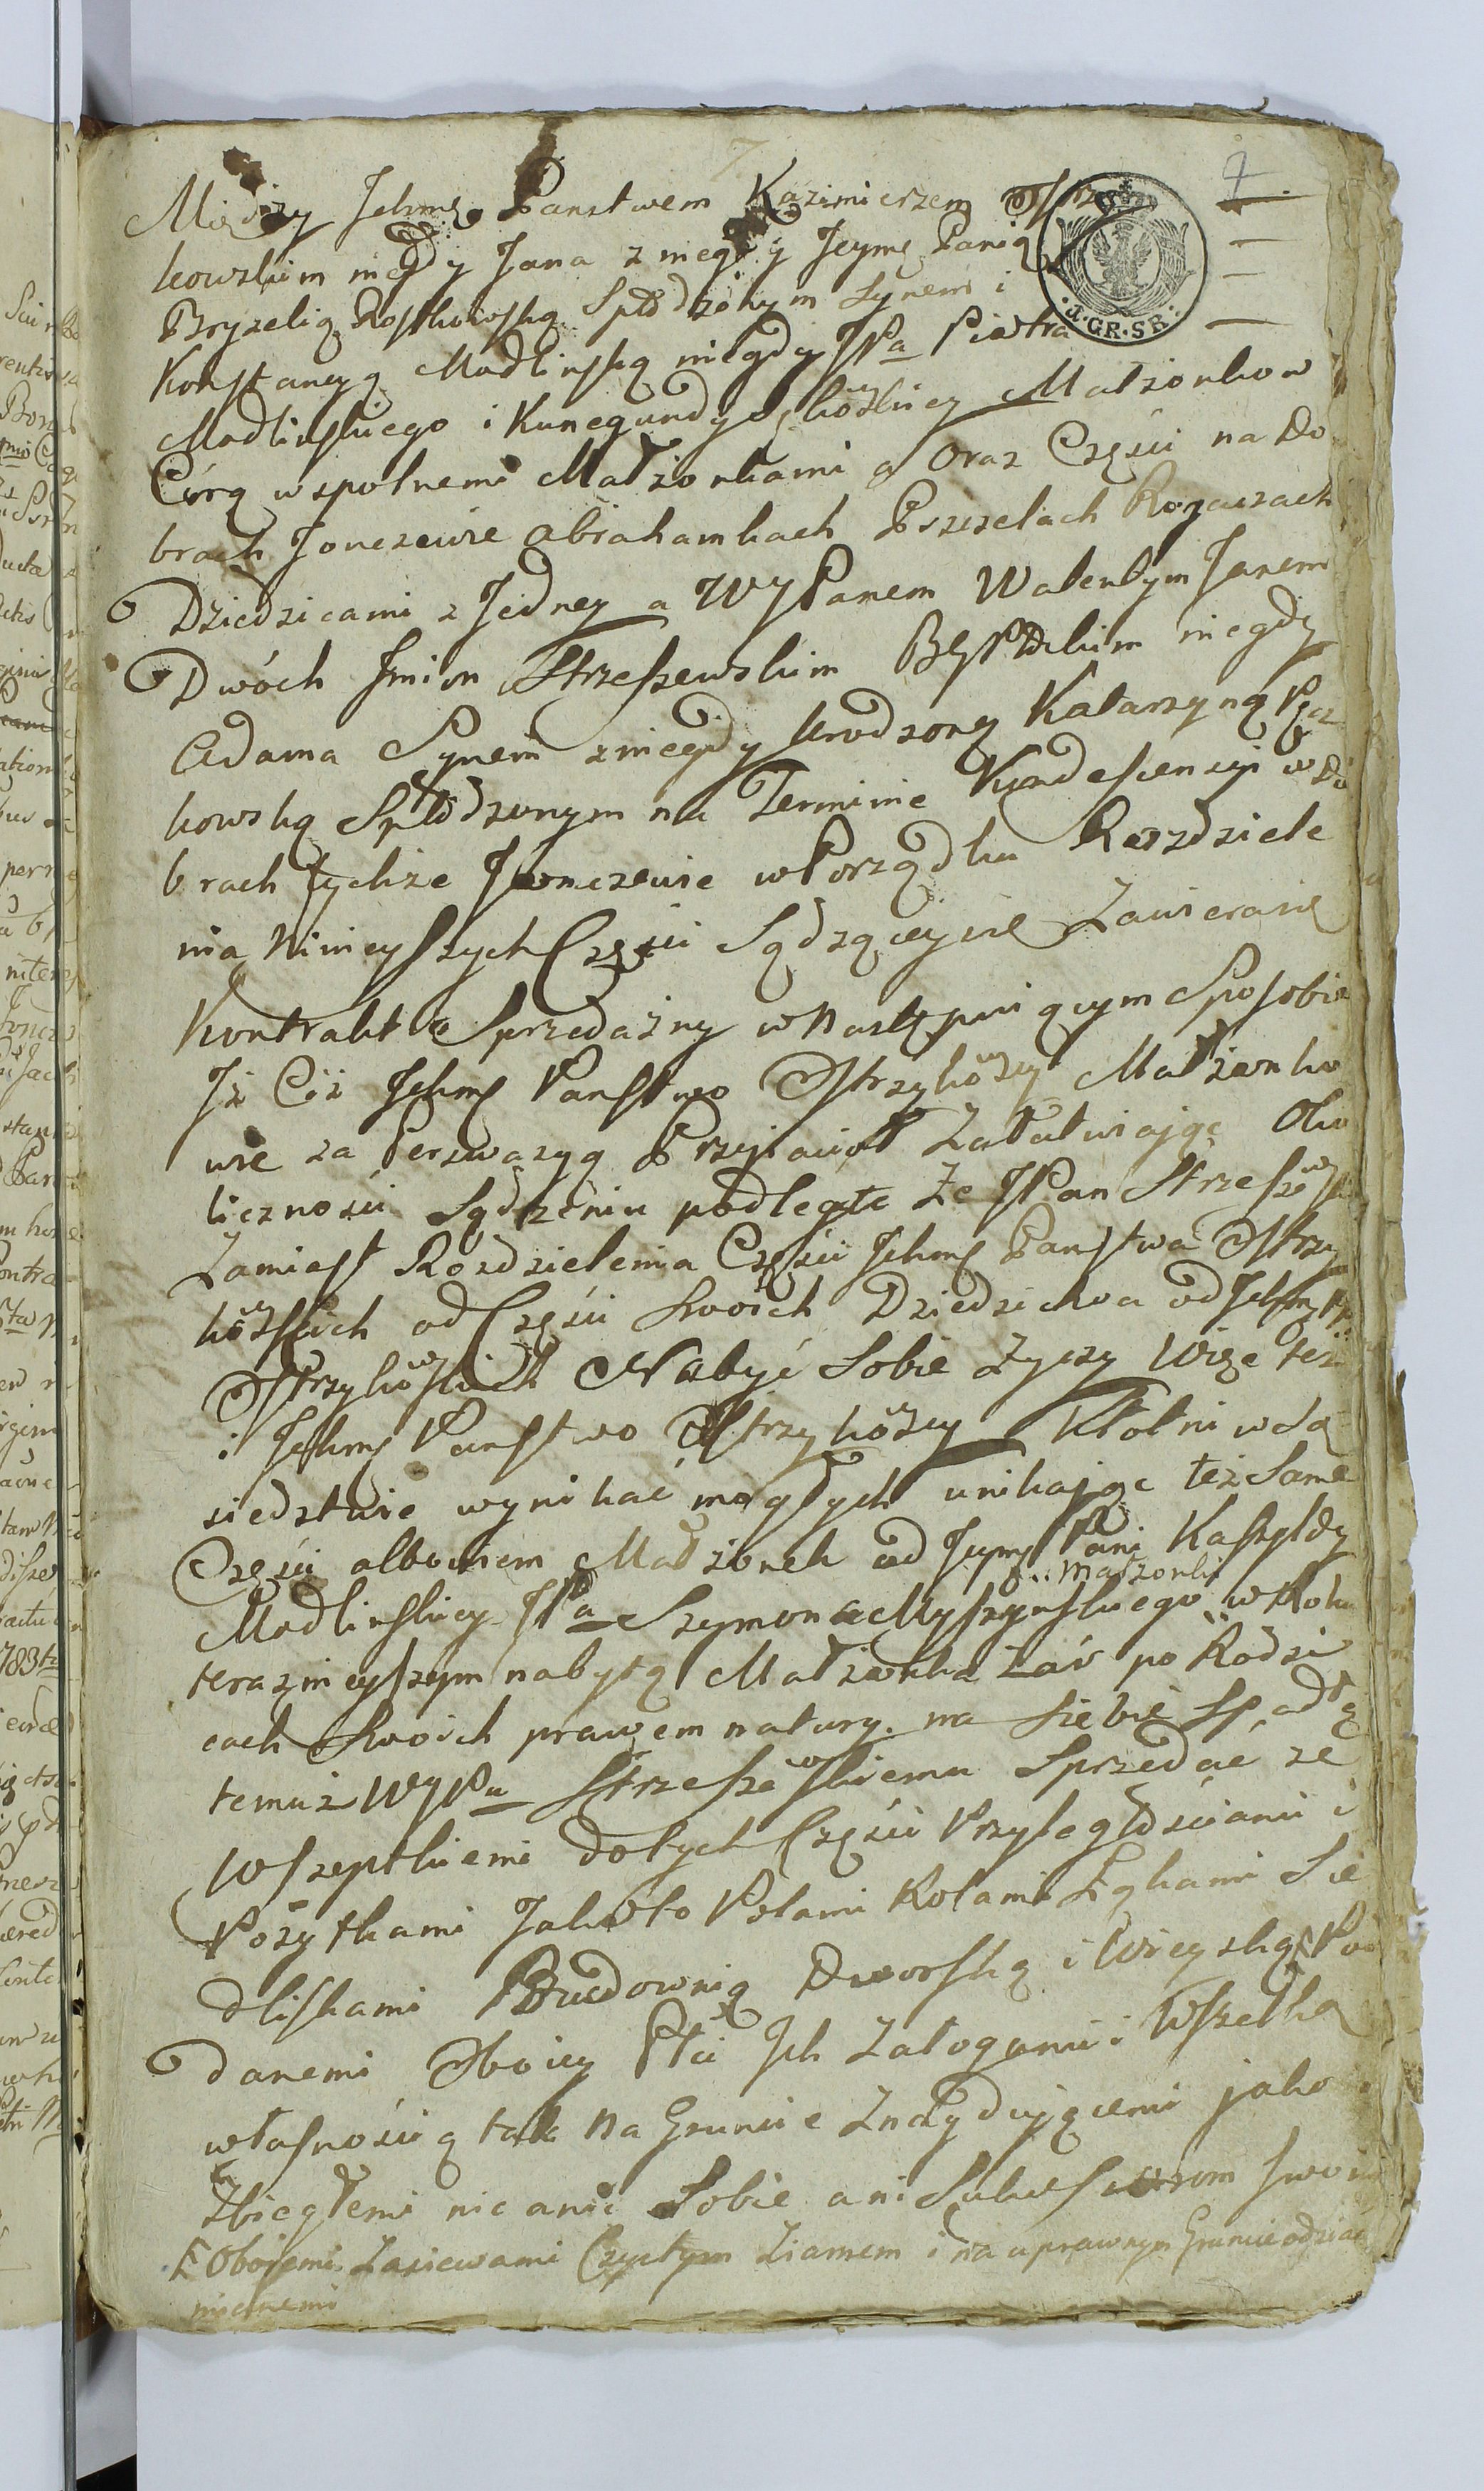 7
Między Jchmę Panstwem Kazimierzem Ostrzy
kowskim niegdy Jana z niegdy Jeymę Panią
J. GR. SR.
Bryzelią Rostkowską Spłodzonym Synem i
Konstancyą Modlinską niegdy JPa Piotra
Modlinskiego i Kunegundy Małżonkow
Córą wspolnemi Małżonkami a oraz Częsci na Do
brach Jonczewie Abrahamkach Pszczelach Rogaczach
Dziedzicami z Jedney a WJPanem Walentym Janem
Dwóch Jmion Strzeszewskim niegdy
Adama Synem z niegdy Urodzoney Katarzyną
kowską Spłodzonym na Terminie Kondescensyi w Do
brach tychże Jonczewie w Porządku Rozdziele
nia Ninieyszych Częsci Sądzącey się Zawiera się
Kontrakt Sprzedażny w Następuiącym Sposobie
Jż Ciż Jchmę Panstwo Ostrzykowscy Małżonko
wie za Perswazyą Przyiacioł Załatwiaiąc Oko
licznosci Sądzeniu podległe Że JPan Strzeszewski
Zamiast Rozdzielenia Częsci Jchmę Panstwa Ostrzy
kowskich od Częsci Swoich Dziedzictwa od Jchmę PP
Ostrzykowskich Nabyć Sobie Życzy Więc też
i Jchmę Panstwo Ostrzykowscy Kłotni w Są
siedztwie wynikać mogących unikaiąc też Same
Częsci albowiem Małżonek od Jeymę Pani Kassyldy
Modlinskiey JPa Szymona Myszynskiego Małzonki w Roku
teraznieyszym nabytą Małżonka Zaś po Rodzi
cach Swoich prawem natury na Siebie Spadłą
temuż WJPu Strzeszewskiemu Sprzedać ze
Wszystkiemi do tych Częsci Przyległosciami i
Pożytkami Jako to Polami Rolami Łąkami Sie
dliskami Budownią Dworską i Wieyską Pod
danemi Oboiey Płci Jch Załogami i Wszelką
własnoscią tak na Gruncie Znayduiącemi jako
Zbiegłemi nic ani Sobie ani Sukcessorom swoim
Oboiemi Zasiewami Czystym Ziarnem i na uprawnym Gruncie odziar
nionemi